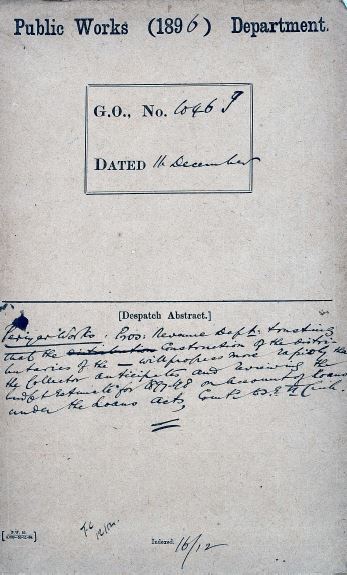 Public Works (1896) Department.
G.O., No. 1096 I
DATED 11 December
[Despatch Abstract.]
Periyar Works. Pros: Revenue Dept: trusting
that the construction of the distri-
butaries of the — will progress more rapidly than
the Collector anticipates and reviewing the
budget Estimate for 1897-98 on account of loans
under the Loans Acts,
Indexed. 16/12